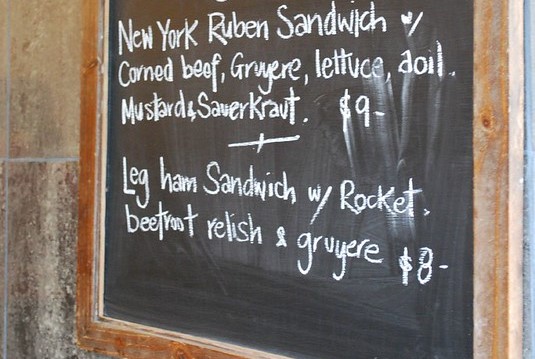 New York Ruben Sandwich w/
Corned beef, Gruyere, lettuce, aoil.
Mustard & Sauerkraut. $9-
Leg ham Sandwich w/ Rocket,
beetroot relish & gruyere $8-